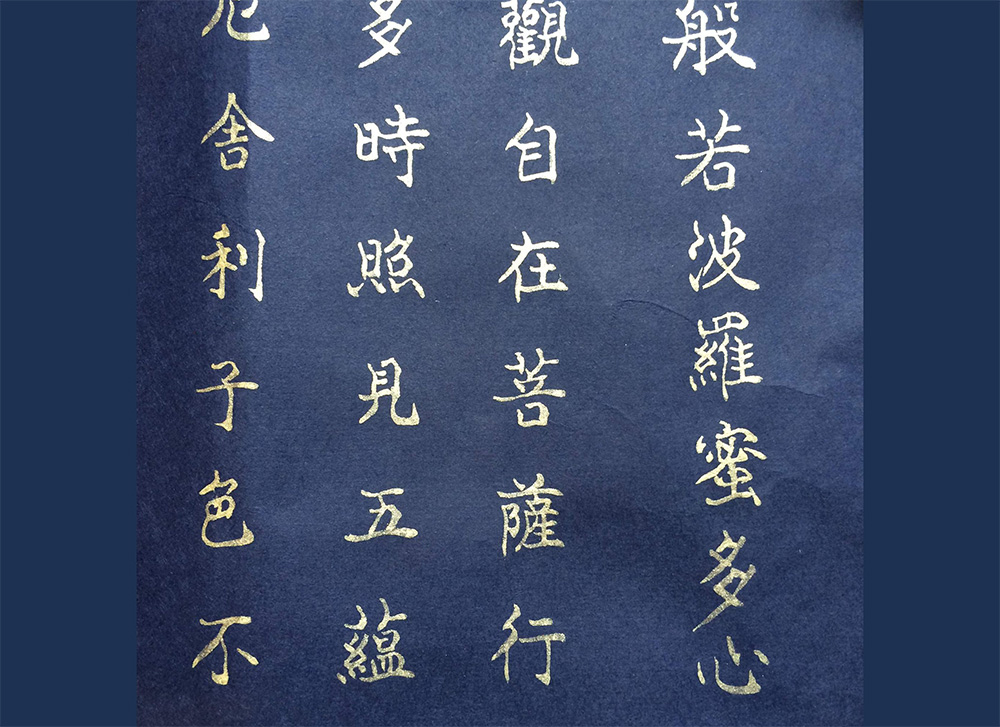 般若波羅蜜多心
觀自在菩薩行
多時照見五蘊
厄舍利子色不